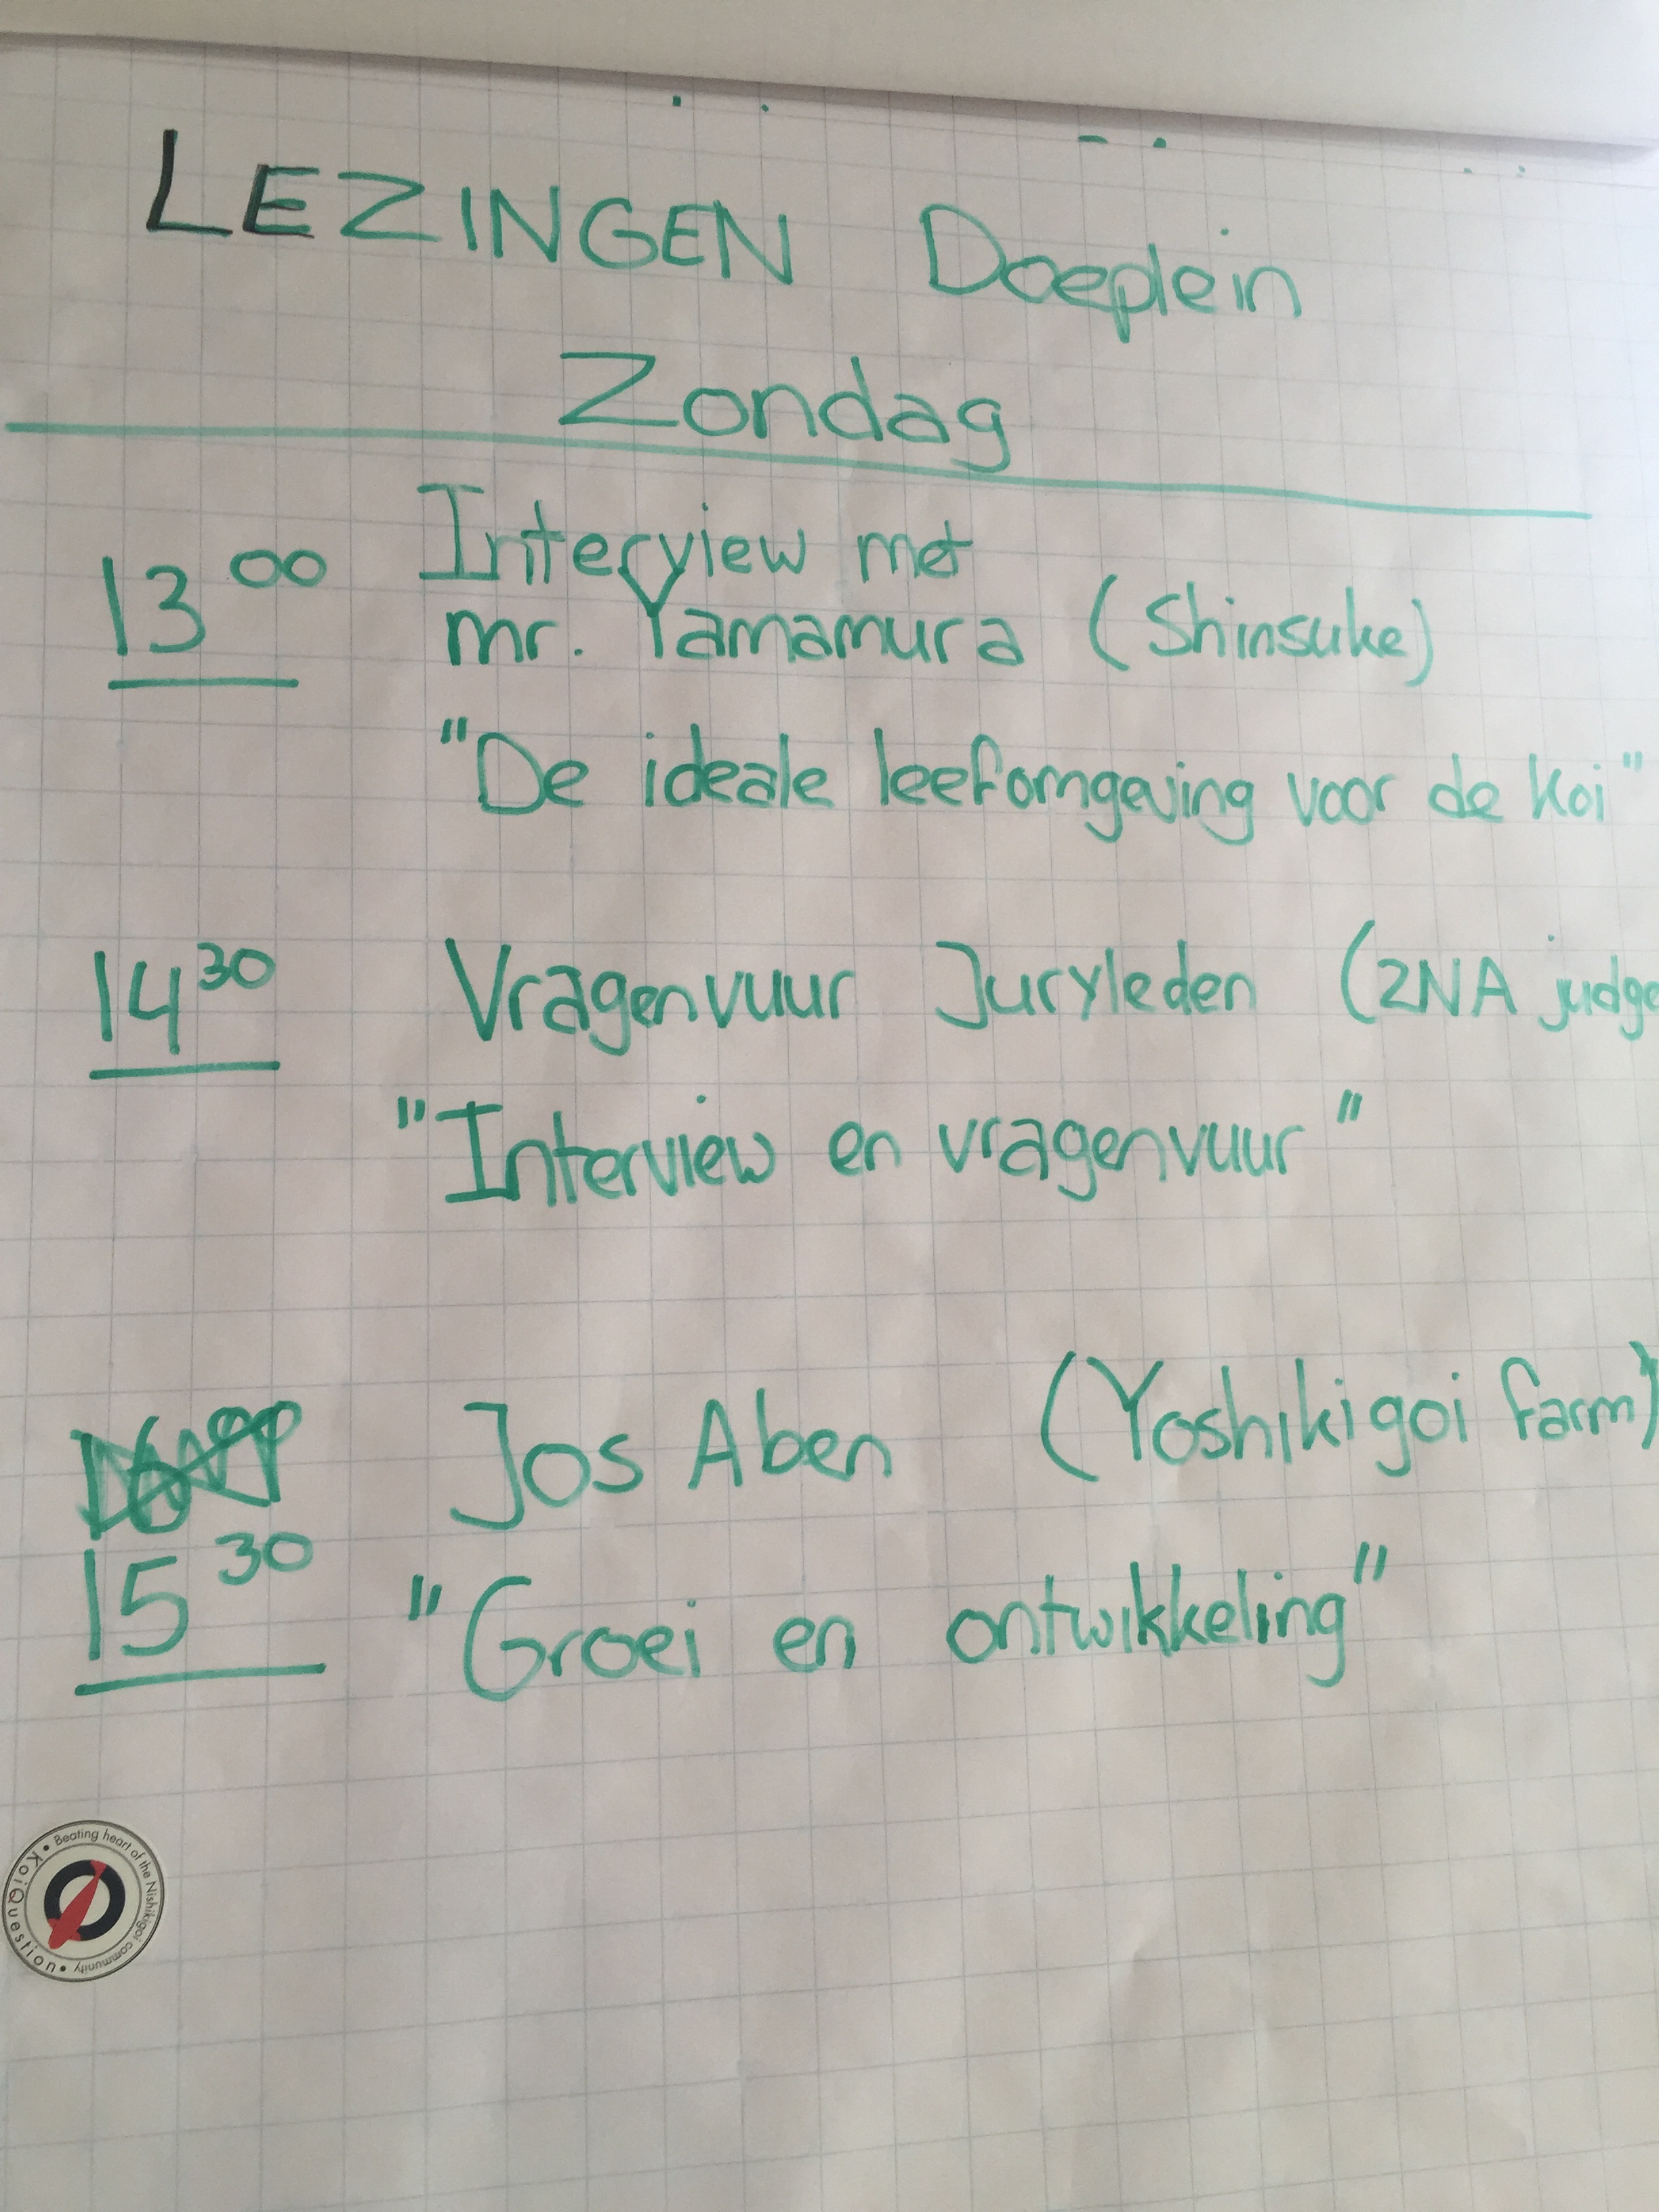 LEZINGEN Doeplein
Zondag
13 00 Interview met
mr. Yamamura (Shinsuke)
"De ideale leefomgeving voor de Koi"
14 30 Vragenvuur Juryleden (ZNA judge
"Interview en vragenvuur"
Jos Aben (Yoshikigoi farm)
15 30 "Groei en ontwikkeling"
• Beating heart of the Nishikigoi community •
KoiQuestion